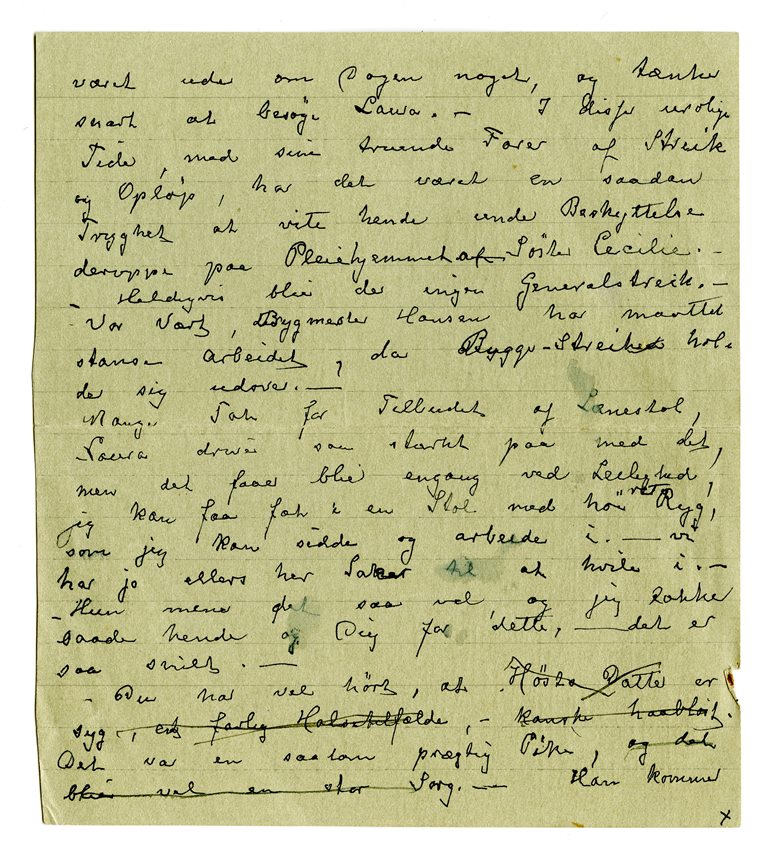 været ude om Dagen noget, og tænker
snart at besøge Laura. — I disse urolige
Tider, med sine truende Farer af Streik
og Opløp, har det været en saadan
Tryghet at vite hende under Beskyttelse
deroppe paa Pleiehjemmet af Søster Cecilie. —
– Heldigvis blir der ingen Generalstreik. —
– Vor Vært, Bygmester Hansen har maattet
stanse arbeidet, da Bygge-Streiken hol-
der sig udover. —
Mange Tak for Tilbudet af Lænestol,
Laura driver saa stærkt paa med det,
men det faaer blie engang ved Leilighed,
jeg kan faa fat i en Stol med høi ret Ryg,
som jeg kan sidde og arbeide i. — vi
har jo ellers her Saker til at hvile i. —
– Hun mener det saa vel, og jeg takker
saade hende og Dig for dette, — det er
saa snilt. —
– Du har vel hørt, at Høsts Datter er
syg, en farlig Halstilfælde, – kanske haabløst.
Det var en saadan prægtig Pike, og det
blier vel en stor Sorg. — Han kommer
x